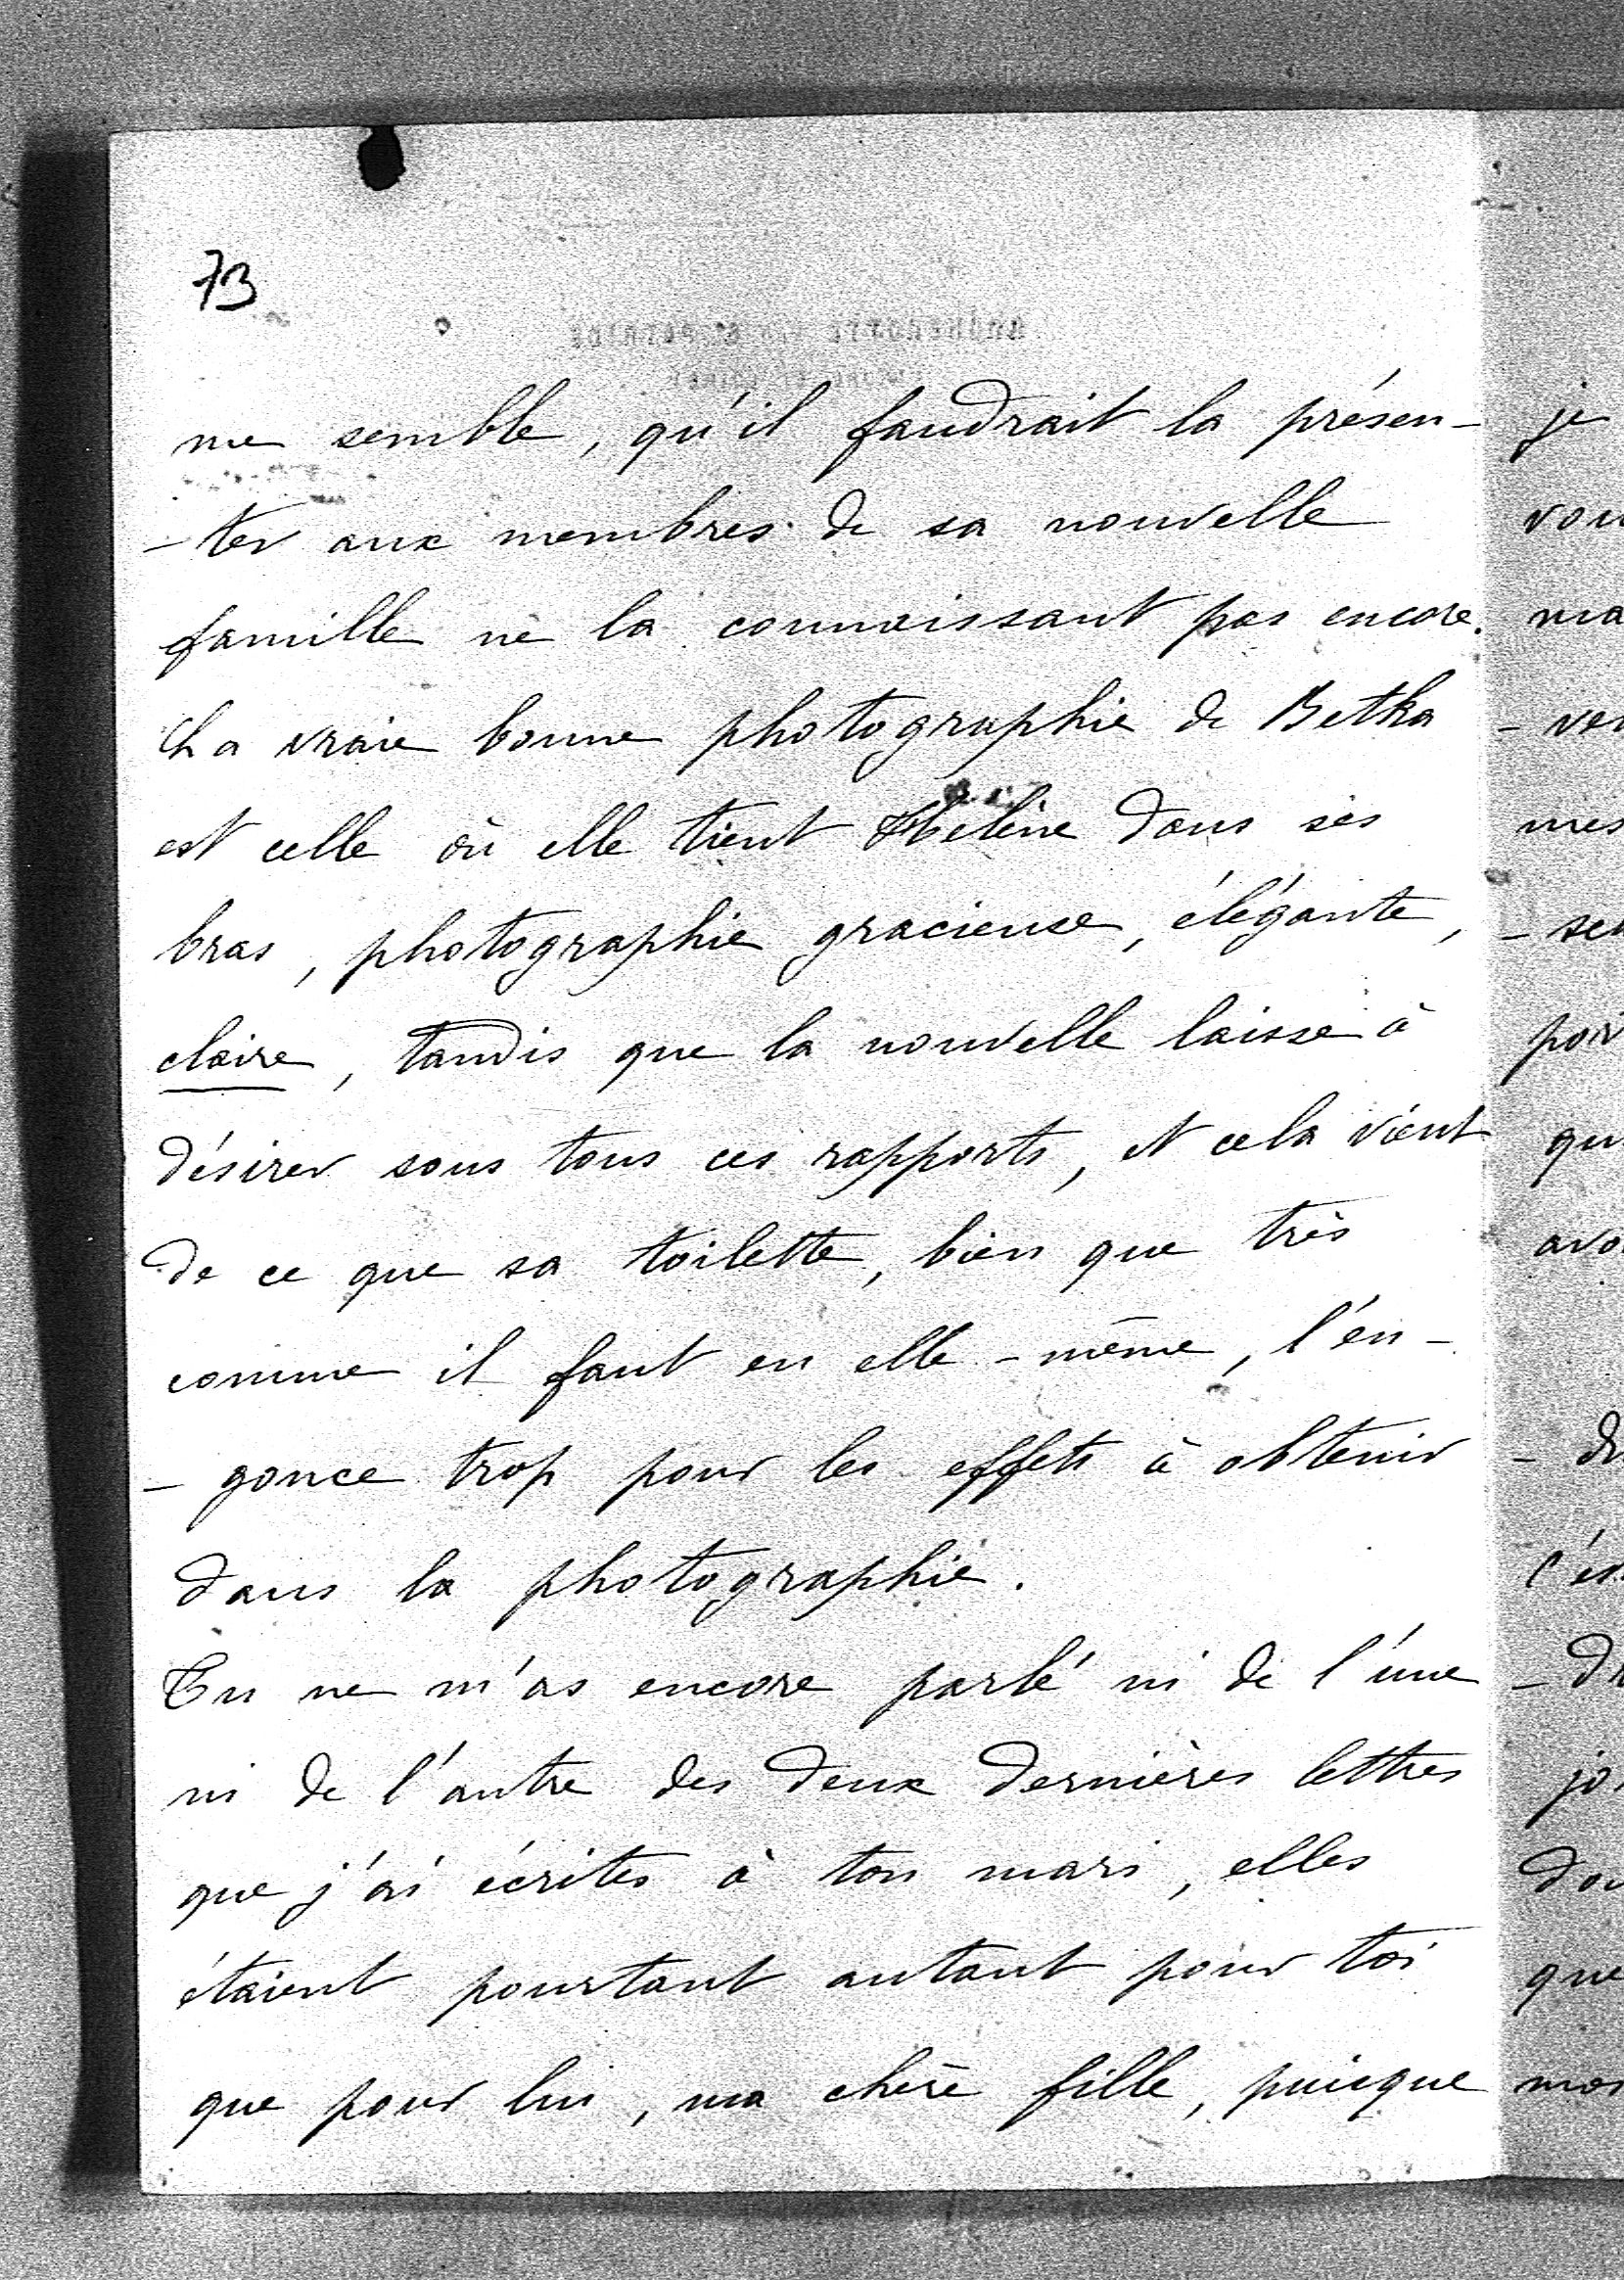 73
me semble, qu'il faudrait la présen-
-ter aux membres de sa nouvelle
famille ne la connaissant pas encore.
La vraie bonne photographie de Betka
est celle où elle tient Hélène dans ses
bras, photographie gracieuse, élégante,
claire, tandis que la nouvelle laisse à
désirer sous tous ces rapports, et cela vient
de ce que sa toilette, bien que très
comme il faut en elle-même, l'en-
-gonce trop pour les effets à obtenir
dans la photographie.
Tu ne m'as encore parlé ni de l'une
ni de l'autre des deux dernières lettres
que j'ai écrites à ton mari, elles
étaient pourtant autant pour toi
que pour lui, ma chère fille, puisque